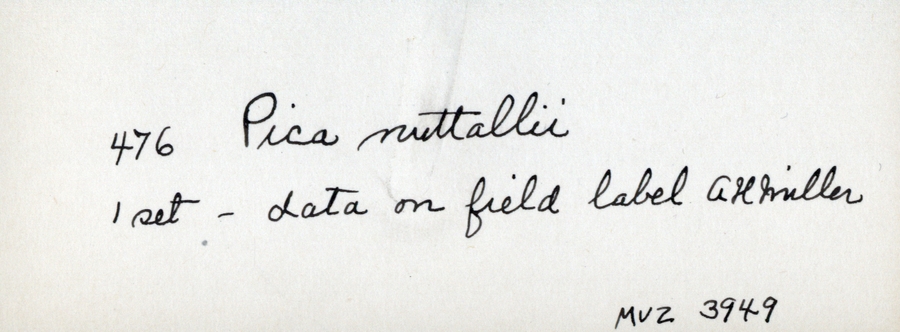 476 Pica nuttallii
1 set - data on field label AHMiller
MVZ 3949